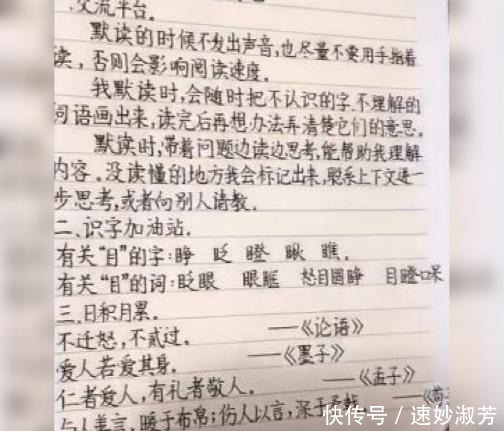 、交流平台。
默读的时候不发出声音,也尽量不要用手指着
读,否则会影响阅读速度。
我默读时,会随时把不认识的字、不理解的
词语画出来,读完后再想办法弄清楚它们的意思。
默读时,带着问题边读边思考,能帮助我理解
内容。没读懂的地方我会标记出来,联系上下文进一
步思考,或者向别人请教。
二、识字加油站。
有关“目”的字:睁 眨 瞪 瞅 瞧。
有关“目”的词:眨眼 眼眶 怒目圆睁 目瞪口呆
三、日积月累。
不迁怒,不贰过。 ——《论语》
爱人若爱其身。 ——《墨子》
仁者爱人,有礼者敬人。 ——《孟子》
与人善言,暖于布帛;伤人以言,深于矛戟。 ——《荀
快传号 / 速妙淑芳